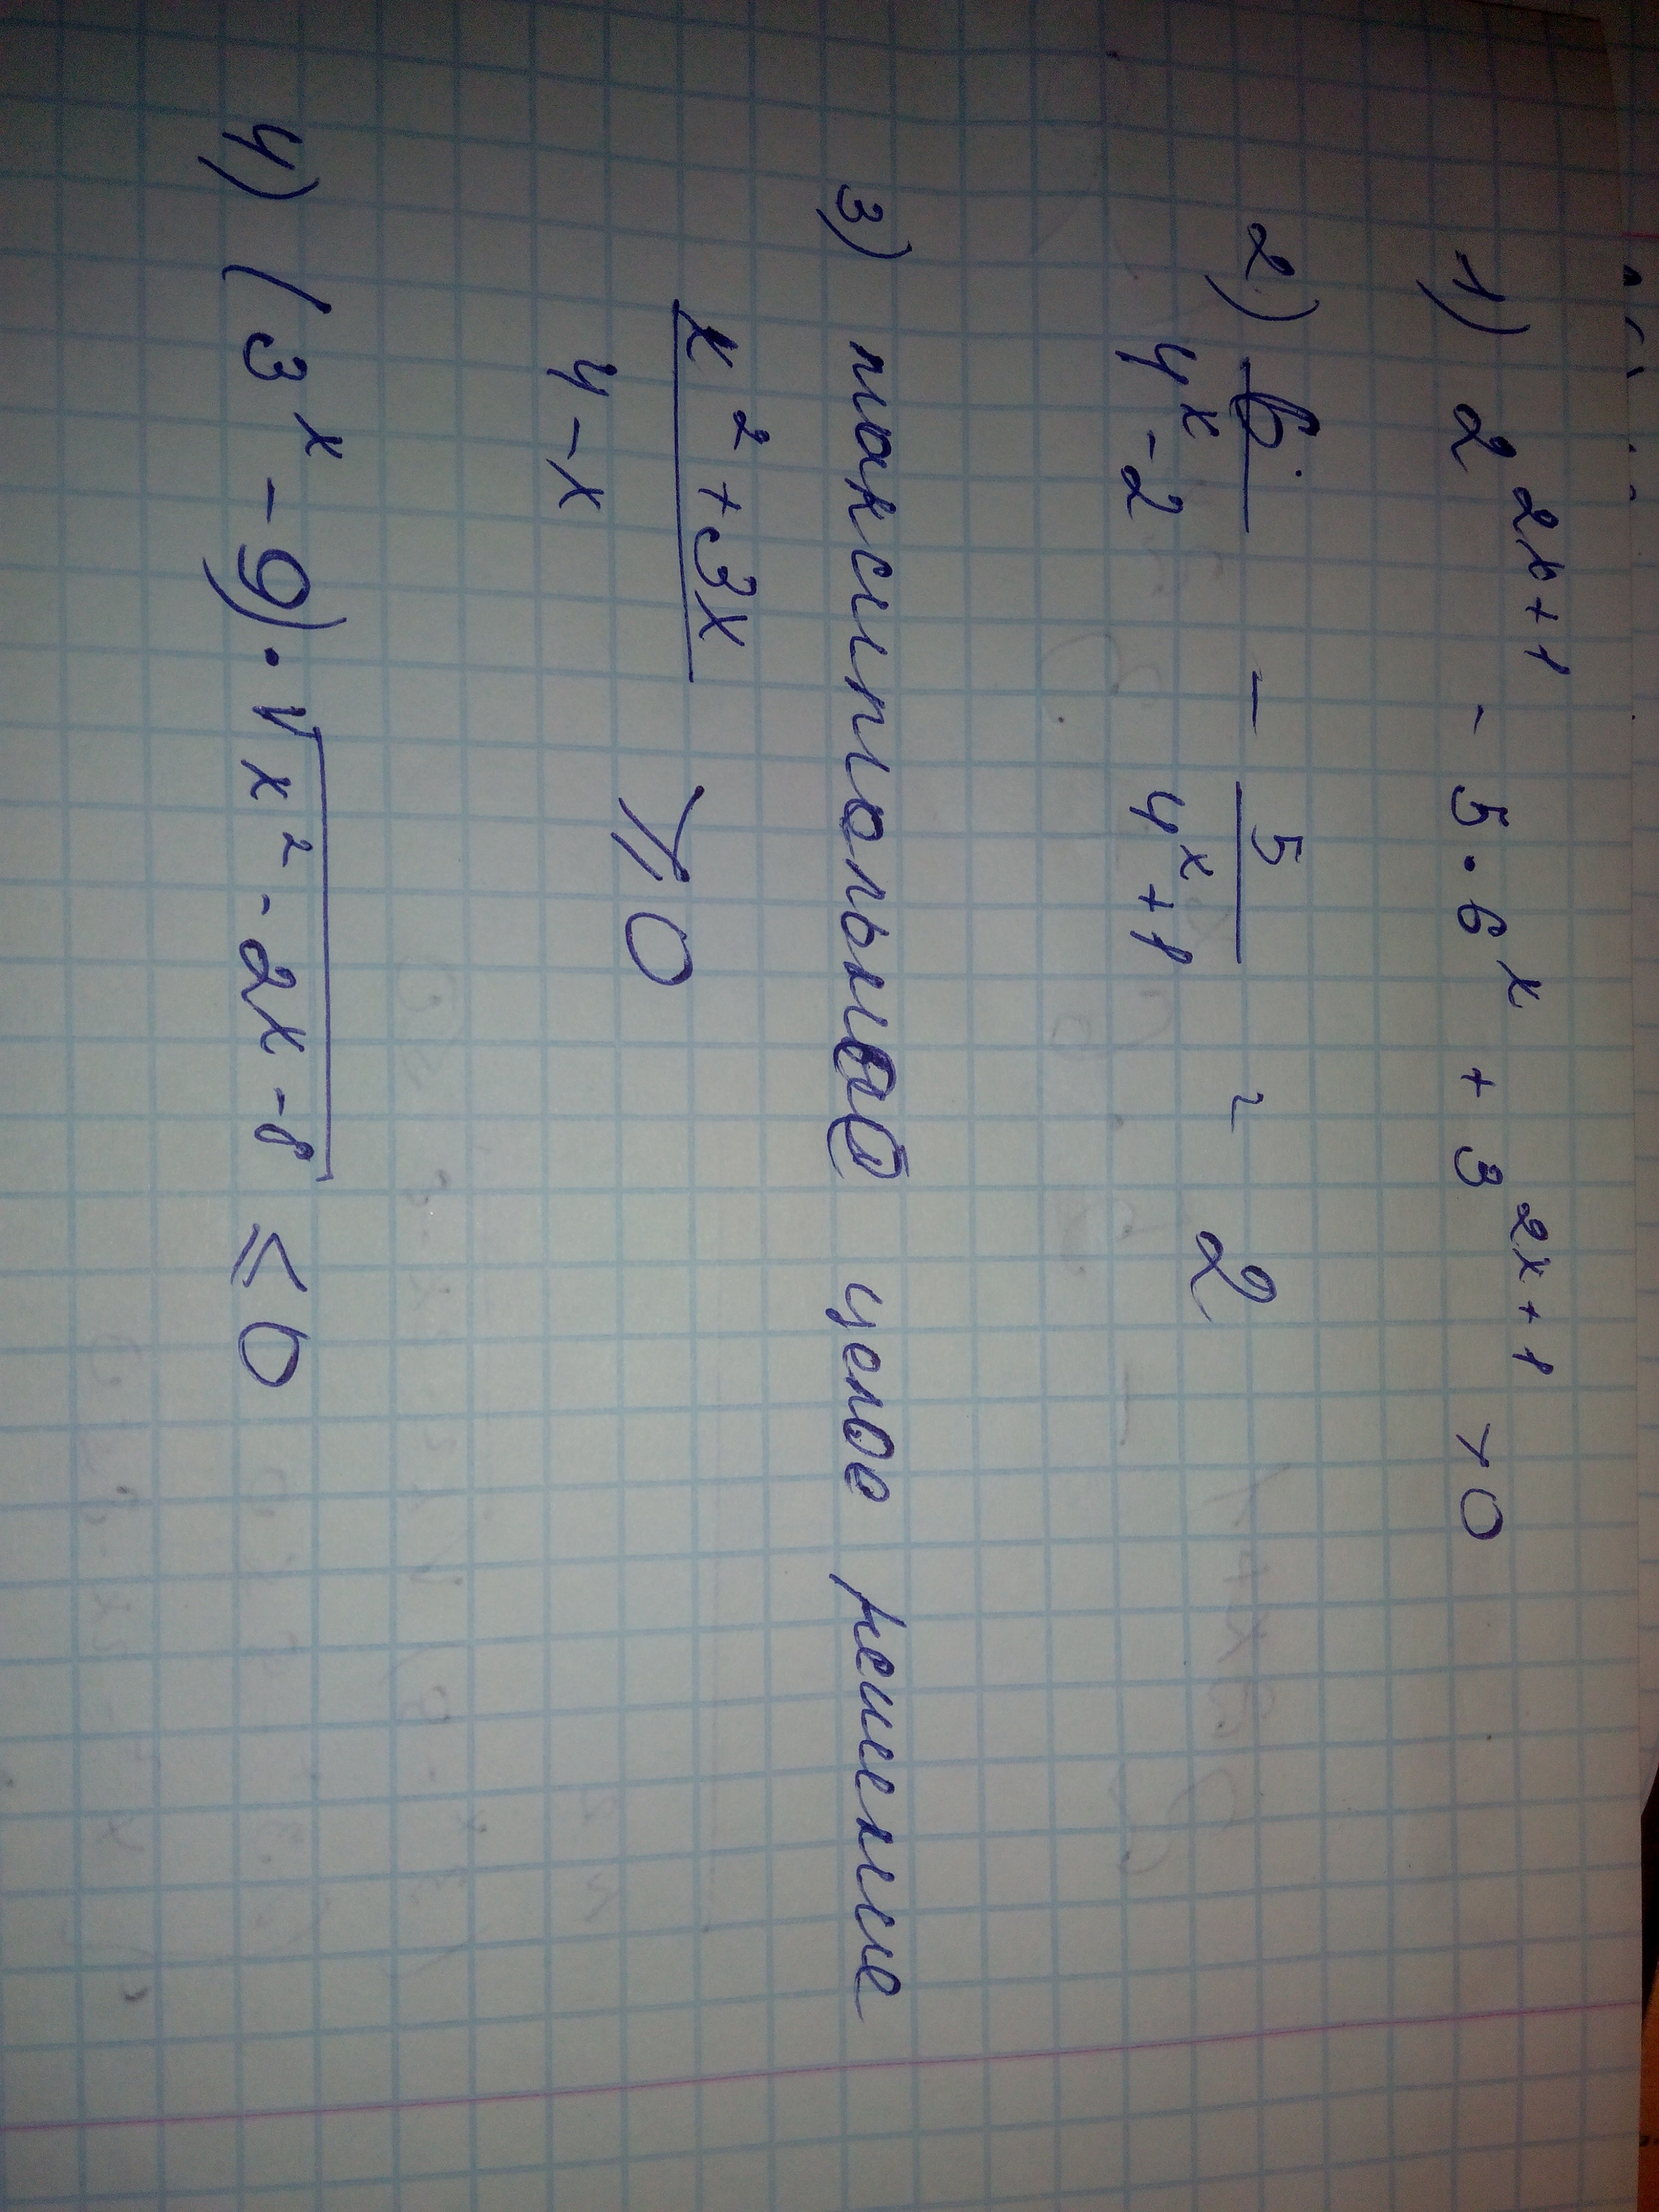 1) 2^{2x+1} - 5 · 6^x + 3^{2x+1} > 0
2) \frac{6}{4^x - 2} - \frac{5}{4^x + 1} = 2
3) максимальное целое решение
\frac{x^2 + 3x}{4 - x} ≥ 0
4) (3^x - 9) · \sqrt{x^2 - 2x - 8} ≤ 0